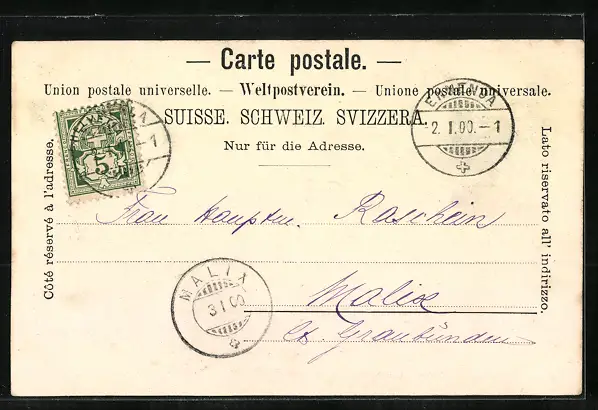 — Carte postale. —
Union postale universelle. — Weltpostverein. — Unione postale universale.
SUISSE. SCHWEIZ. SVIZZERA.
Nur für die Adresse.
Côté réservé à l'adresse.
Lato riservato all' indirizzo.
2. I. 00. – 1
5
Frau Hauptm. Raschein
Malix
Ct. Graubünden
MALIX
3 I 00